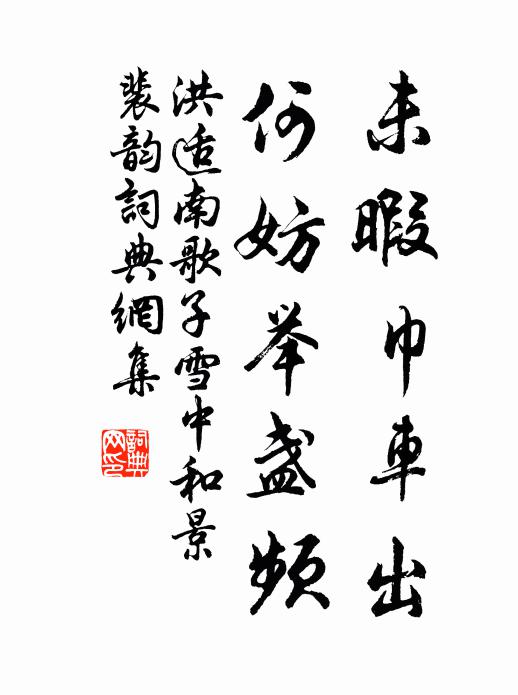 未暇巾車出
何妨举盏頻
洪适南歌子雪中和景
裴韵詞典網集
詞典
网印